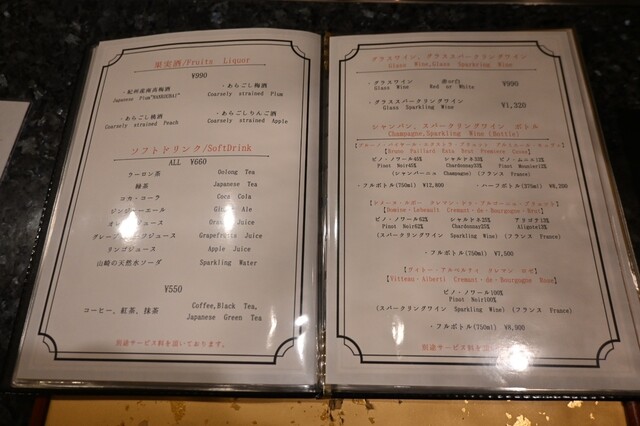 果実酒/Fruits Liquor
¥990
・紀州産南高梅酒
Japanese Plum"NANKOBAI"
・あらごし梅酒
Coarsely strained Plum
・あらごし桃酒
Coarsely strained Peach
・あらごしりんご酒
Coarsely strained Apple
ソフトドリンク/SoftDrink
ALL ¥660
ウーロン茶 Oolong Tea
緑茶 Japanese Tea
コカ・コーラ Coca Cola
ジンジャーエール Ale
オレンジジュース Juice
グレープフルーツジュース Grapefruits Juice
リンゴジュース Apple Juice
山崎の天然水ソーダ Sparkling Water
¥550
コーヒー、紅茶、抹茶 Coffee,Black Tea,
Japanese Green Tea
別途サービス料を頂いております。
グラスワイン、グラススパークリングワイン
Glass Wine,Glass Sparkling Wine
・グラスワイン 赤or白 ¥990
Glass Wine Red or White
・グラススパークリングワイン
Glass Sparkling Wine ¥1,320
シャンパン、スパークリングワイン ボトル
Champagne,Sparkling Wine (Bottle)
【Bruno Paillard Extra Brut Premiere Cuvee】
ピノ・ノワール45% シャルドネ33% ピノ・ムニエ12%
Pinot Noir45% Chardonnay33% Pinot Meunier12%
(シャンパーニュ Champagne) (フランス France)
・フルボトル(750ml) ¥12,800 ・ハーフボトル(375ml)
【Domine・Lebeault Cremant・de・Bourgogne・Brut】
ピノ・ノワール62% シャルドネ25% アリゴテ13%
Pinot Noir62% Chardonnay25% Aligote13%
(スパークリングワイン Sparkling Wine) (フランス France)
・フルボトル(750ml) ¥7,500
【Vitteau・Alberti Cremant・de・Bourgogne Rose】
ピノ・ノワール100%
Pinot Noir100%
(スパークリングワイン Sparkling Wine) (フランス France)
・フルボトル(750ml) ¥8,900
別途サービス料を